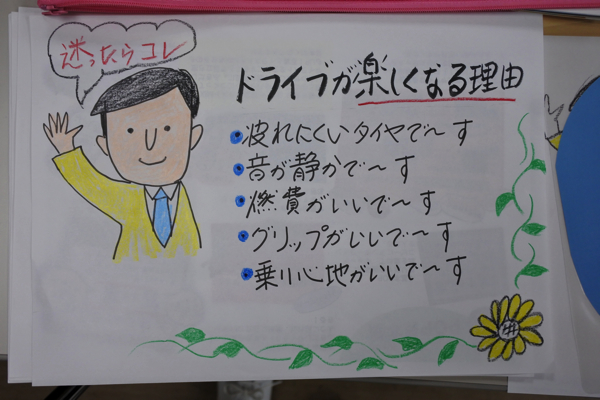 迷ったらコレ
ドライブが楽しくなる理由
疲れにくいタイヤで〜す
音が静かで〜す
燃費がいいで〜す
グリップがいいで〜す
乗り心地がいいで〜す